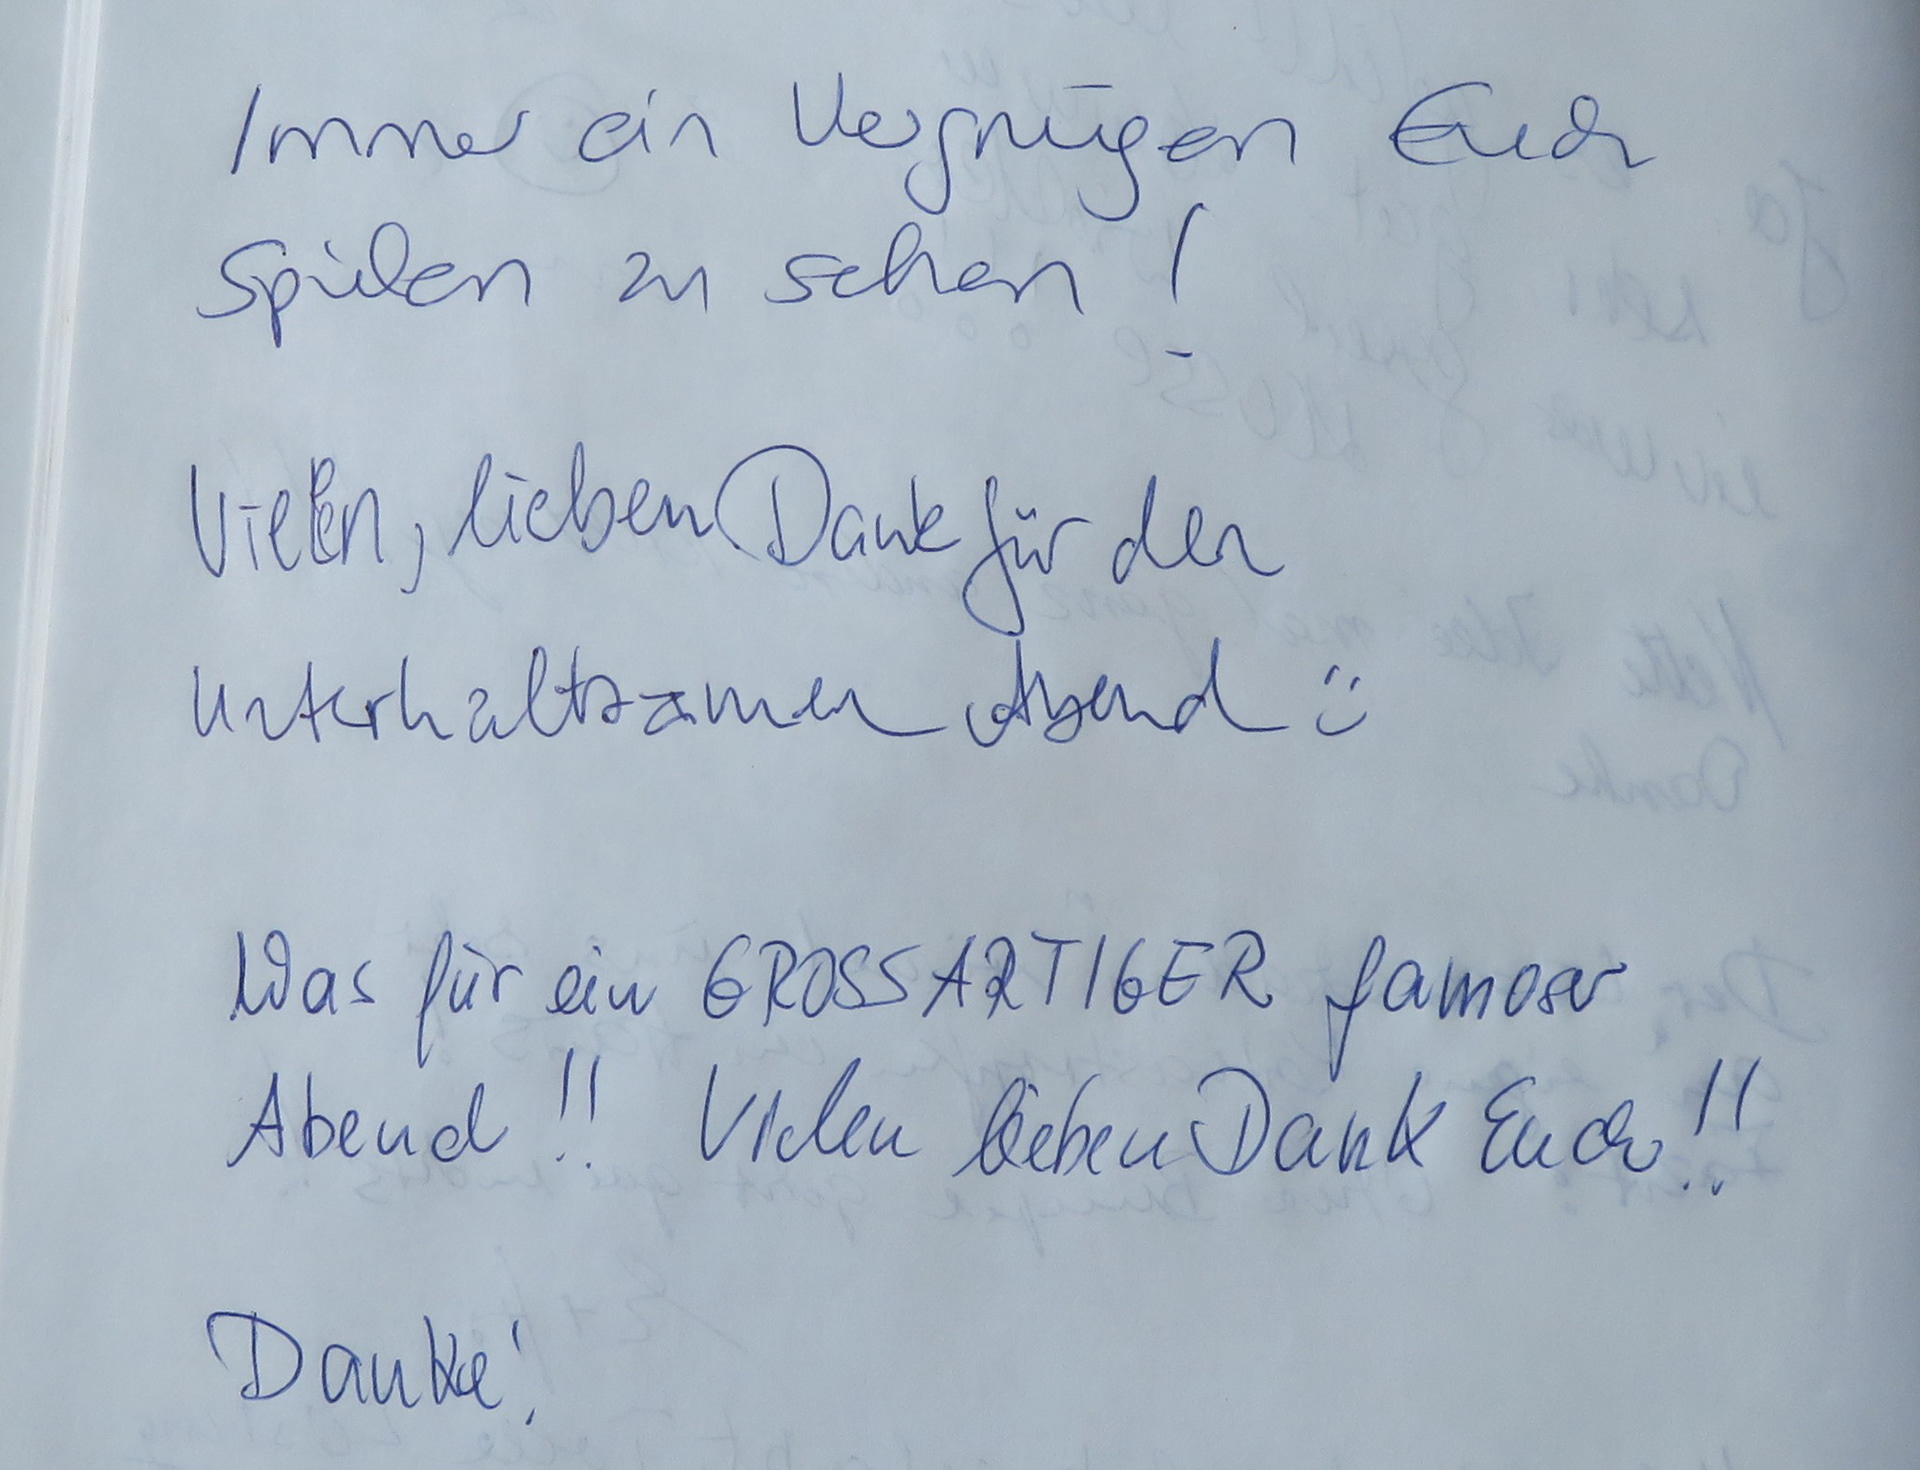 Immer ein Vergnügen Euch
spielen zu sehen!
Vielen, lieben Dank für den
unterhaltsamen Abend :)
Was für ein GROSSARTIGER famoser
Abend!! Vielen lieben Dank Euch!!
Danke!